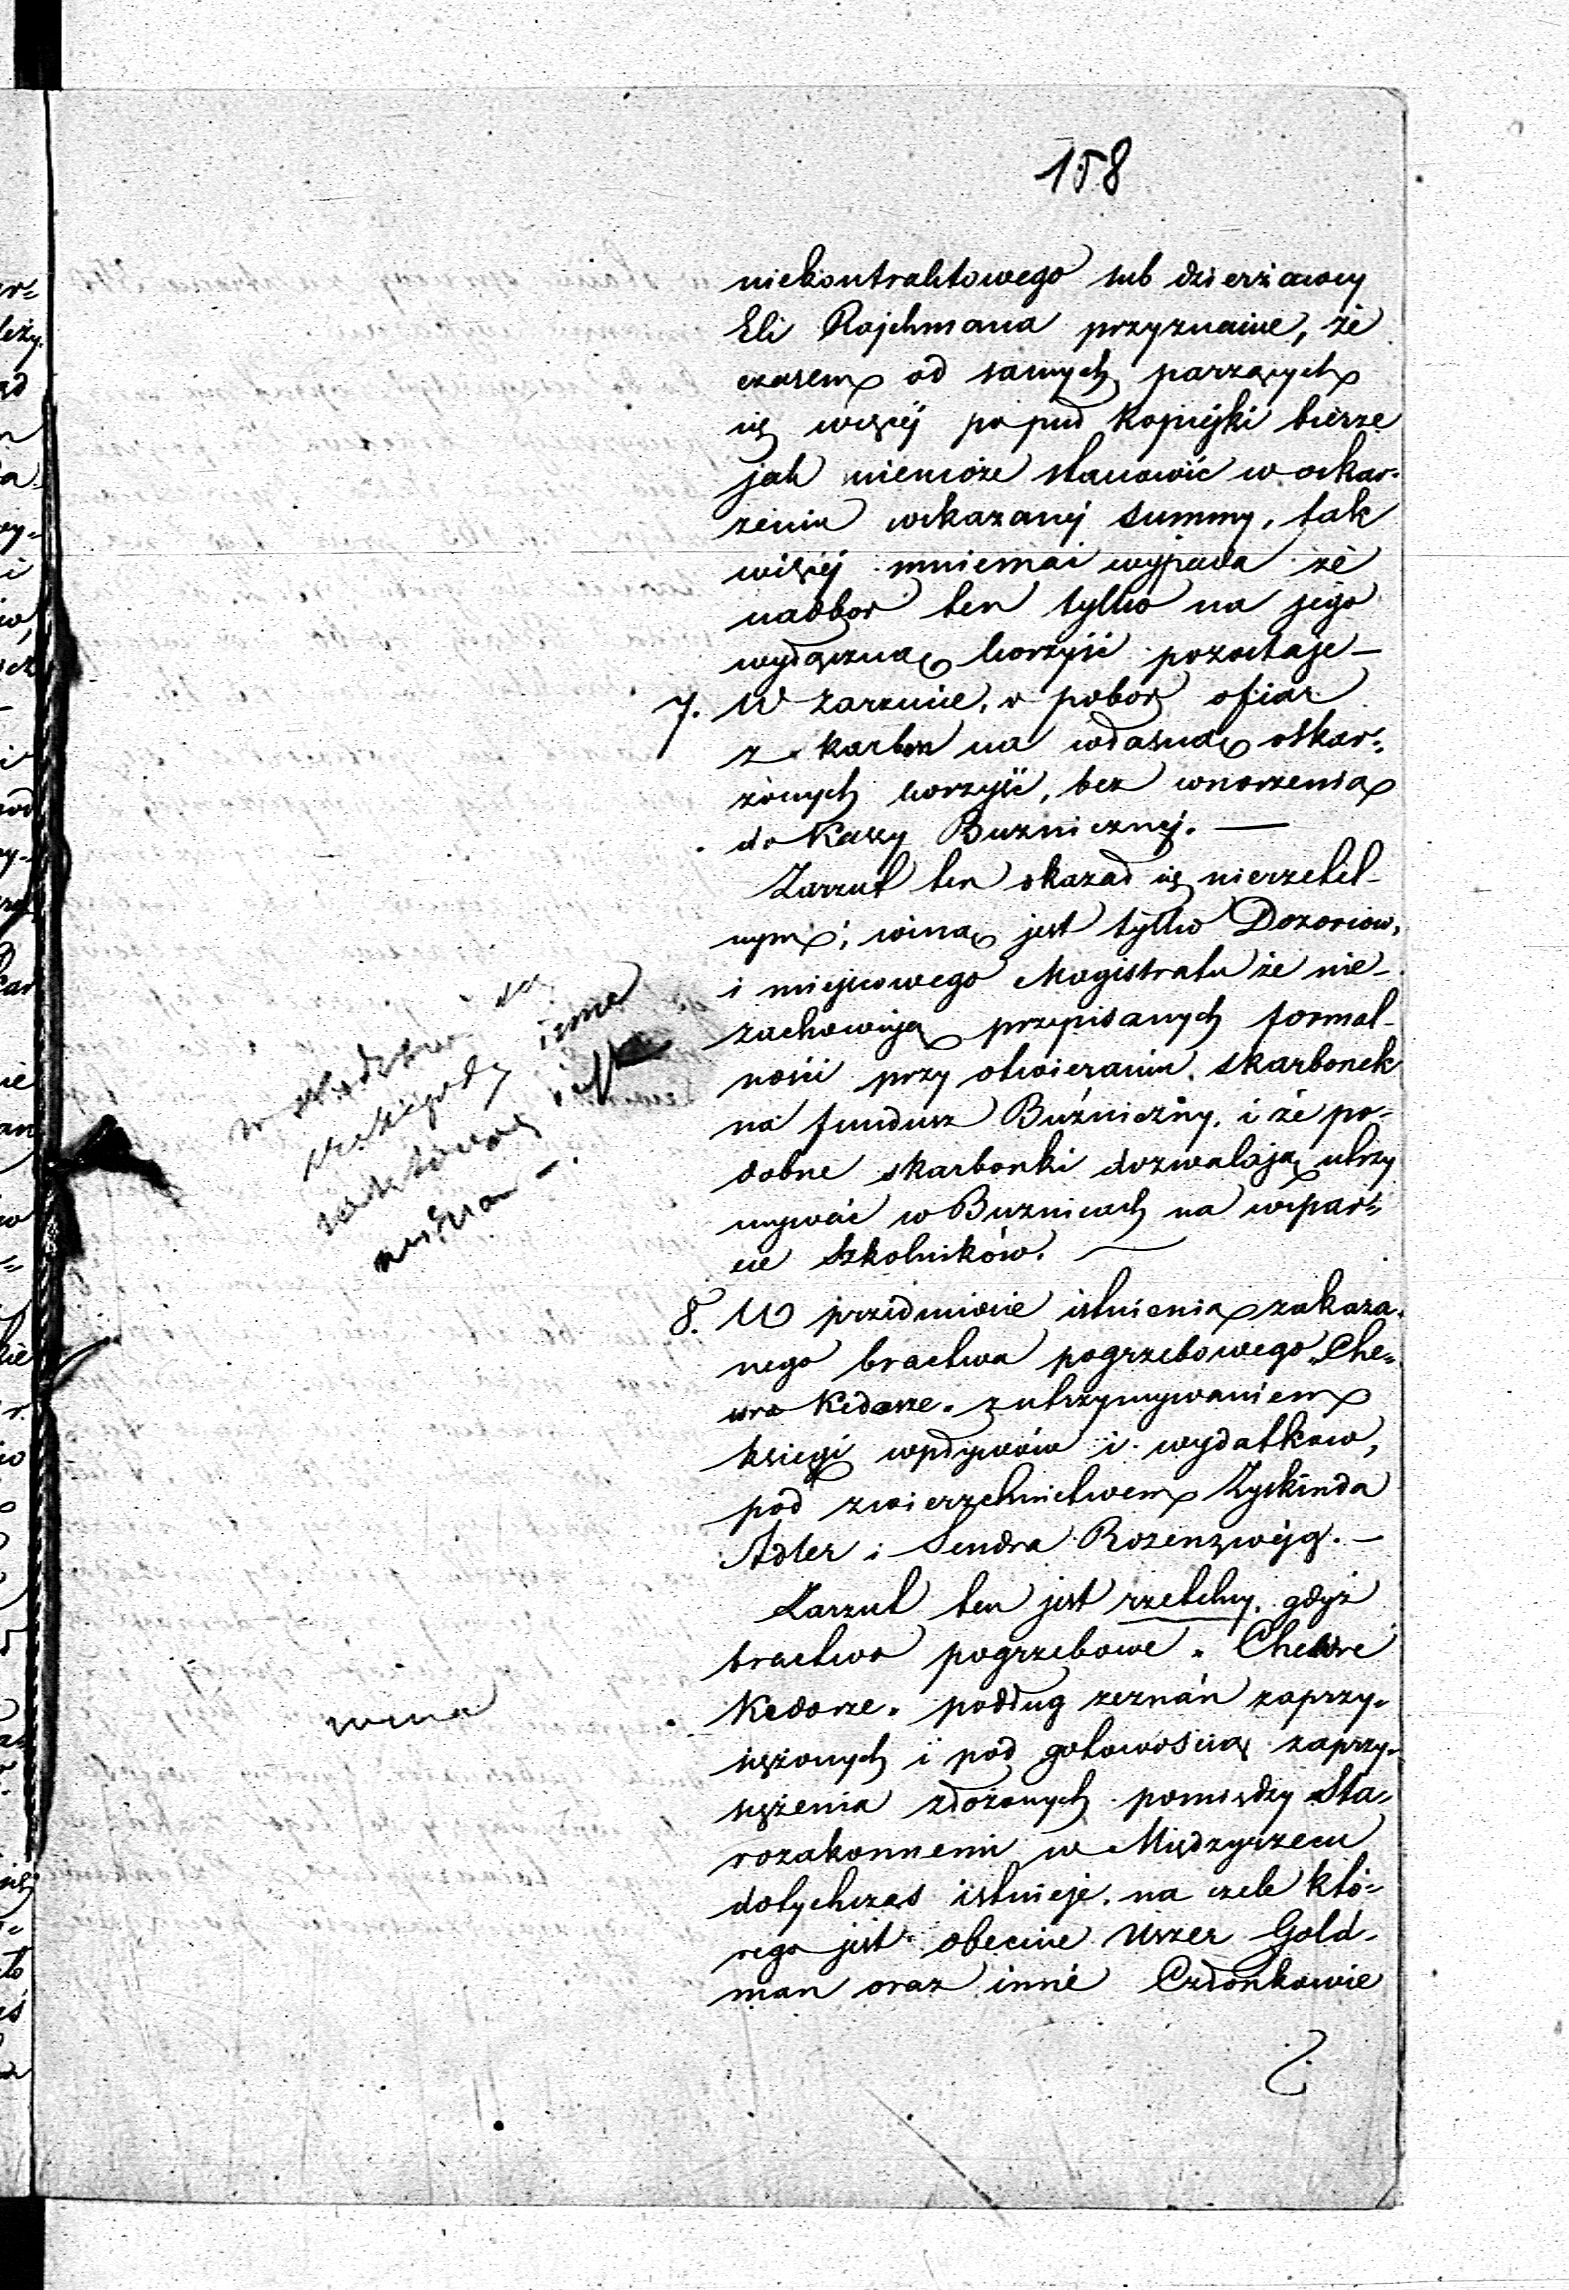 158
niekontraktowego sub dzierżawcy
Eli Rajchmana przyznanie, że
czasem od samych parzących
się więcéj po pud kopiejki bierze
jak niemoże stanowić w oskar-
żeniu wskazanéj summy, tak
więcéj mniemać wypada że
nadbor ten tylko na jego
wyłączną korzyść pozostaje —
7. W zarzucie, o pobor ofiar
z karbon na własną oskar-
żonych korzyść, bez wnoszenia
do Kassy Buznicznej. —
Zarzut ten okazał się nierzetel-
nym, winą jest tylko Dozorców,
i miejscowego Magistratu że nie-
zachowują przepisanych formal-
ności przy otwieraniu skarbonek
na fundusz Buźniczny, i że po-
dobne skarbonki dozwalają utrzy
mywać w Buznicach na wspar-
cie szkolników. —
8. W przedmiocie istnienia zakaza-
nego bractwa pogrzebowego „Che-
wra Kedosze„ z utrzymywaniem
księgi wpływów i wydatkow,
pod zwierzchnictwem Zyskinda
Adler i Sendra Rozenzwejg. —
Zarzut ten jest rzetelny, gdyż
bractwo pogrzebowe „Chewre
Kedosze„ podług zeznań zaprzy-
siężonych i pod gotowością zaprzy-
siężenia złożonych pomiędzy Sta-
rozakonnemi w Międzyrzecu
dotychczas istnieje, na czele któ-
rego jest obecnie Uszer Gold-
man oraz inné Członkowie
wina